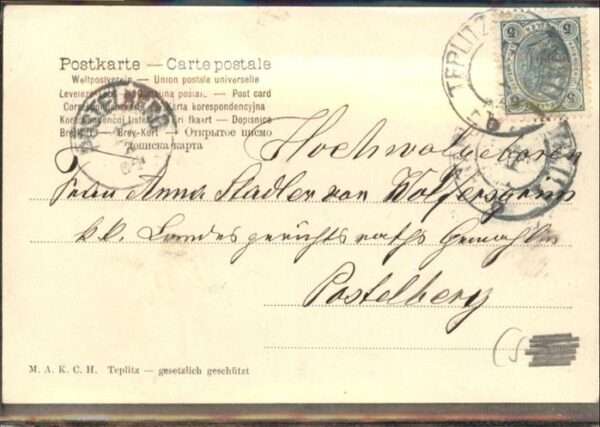 Postkarte — Carte postale
Weltpostverein — Union postale universelle
postai. — Post card
karta korespondencyjna
Dopisnica
Brev-Kort — Открытое письмо
Дописна карта
TEPLITZ
5 5
5 5
Hochwolgeboren
Frau Anna Stadler von Wolfersgrün
k.k. Landesgerichtsraths Gemahlin
Postelberg
M. A. K. C. H. Teplitz — gesetzlich geschützt